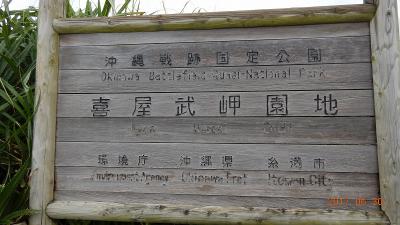 沖縄戦跡国定公園
Okinawa Battlefield Quasi-National Park
喜屋武岬園地
環境庁 沖縄県 糸満市
Environment Agency Okinawa Pref Itoman City